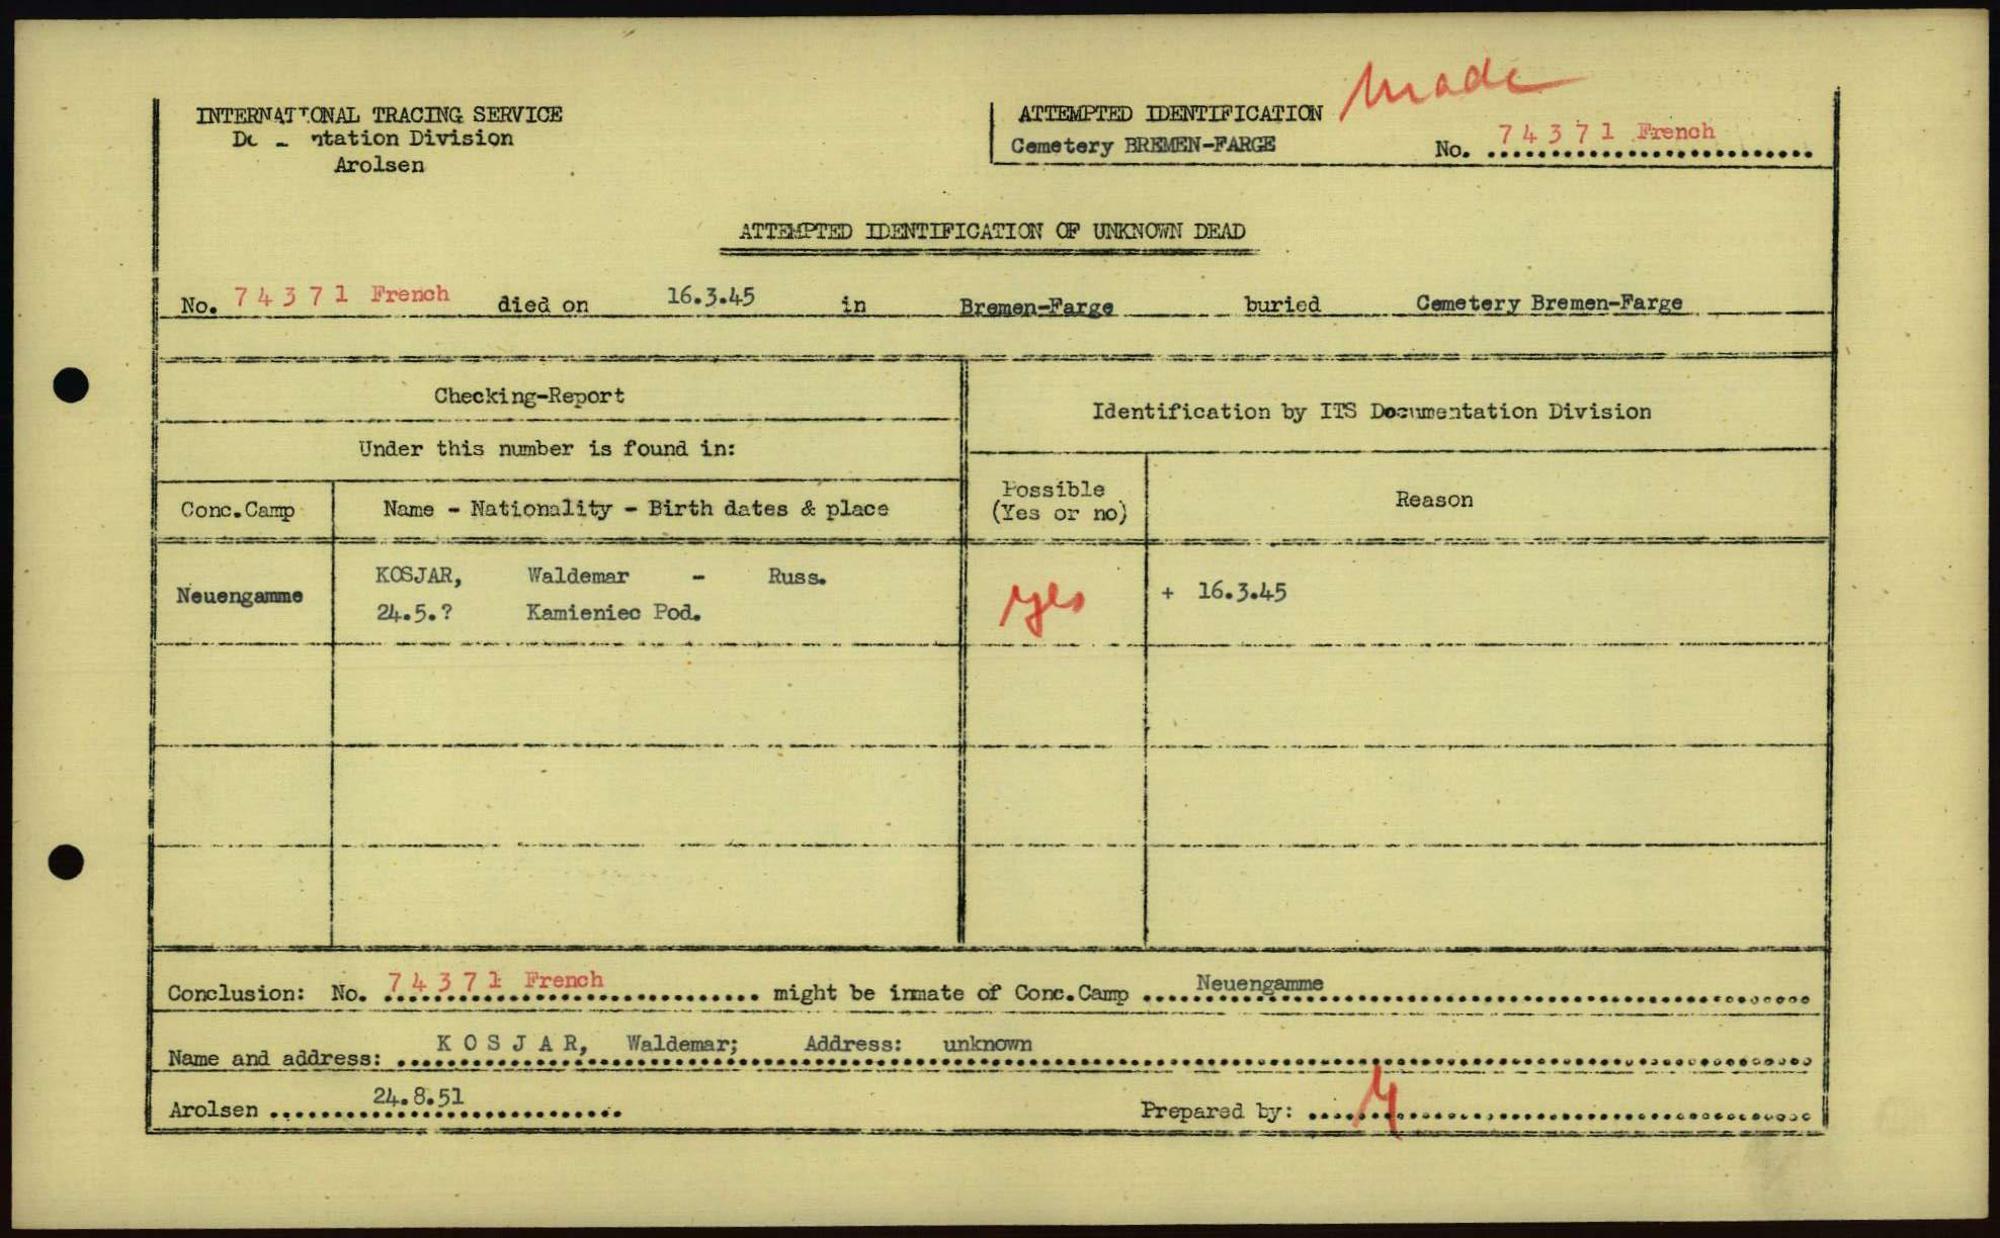 INTERNATIONAL TRACING SERVICE
ntation Division
Arolsen
ATTEMPTED IDENTIFICATION made
Cemetery BREMEN-FARGE
No. 74371 French
ATTEMPTED IDENTIFICATION OF UNKNOWN DEAD
No. 74371 French died on 16.3.45 in Bremen-Farge buried Cemetery Bremen-Farge
Checking-Report
Under this number is found in:
Identification by ITS Documentation Division
Conc.Camp
Name - Nationality - Birth dates & place
Possible
(Yes or no)
Reason
Neuengamme
KOSJAR, Waldemar - Russ.
24.5.? Kamieniec Pod.
yes
+ 16.3.45
Conclusion: No. 74371 French might be inmate of Conc.Camp Neuengamme
Name and address: K O S J A R, Waldemar; Address: unknown
Arolsen 24.8.51
Prepared by: